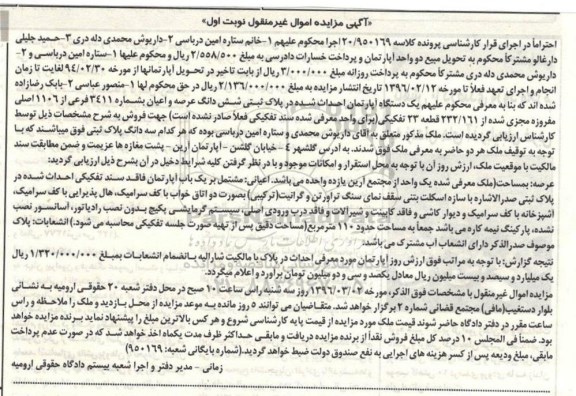 «آگهی مزایده اموال غیرمنقول نوبت اول»
احتراماً در اجرای قرار کارشناسی پرونده کلاسه ۲۰/۹۵۰۱۶۹ اجرا محکوم علیهم ۱-خانم ستاره امین درباسی ۲-داریوش محمدی دله دری ۳-حمید جلیلی
دارغالو مشترکاً محکوم به تحویل مبیع دو واحد آپارتمان و پرداخت خسارات دادرسی به مبلغ ۲/۵۵۸/۵۰۰ ریال و محکوم علیها ۱-ستاره امین درباسی و ۲-
داریوش محمدی دله دری مشترکاً محکوم به پرداخت روزانه مبلغ ۳/۰۰۰/۰۰۰ ریال از بابت تاخیر در تحویل آپارتمانها از مورخه ۹۴/۰۲/۳۰ لغایت تا زمان
انجام و اجرای تعهد فعلاً تا مورخه ۱۳۹۶/۰۲/۱۲ تاریخ انتشار مزایده به مبلغ ۲/۱۳۶/۰۰۰/۰۰۰ ریال در حق محکوم لها ۱-منصور عباسی ۲-بابک رضازاده
شده اند که بنا به معرفی محکوم علیهم یک دستگاه آپارتمان احداث شده در پلاک ثبتی شش دانگ عرصه و اعیان بشماره ۳۴۱۱ فرعی از ۱۱۰۶ اصلی
مفروزه مجزی شده از ۲۳۲/۱۶۱ قطعه ۲۳ تفکیکی (برای واحد معرفی شده سند تفکیکی فعلاً صادر نشده است) جهت فروش به شرح مشخصات ذیل توسط
کارشناس ارزیابی گردیده است. ملک مذکور متعلق به آقای داریوش محمدی و ستاره امین درباسی بوده که هر کدام سه دانگ پلاک ثبتی فوق میباشند که با
توجه به توقیف ملک هر دو حاضر به معرفی ملک فوق شدند. به آدرس گلشهر ۴ - خیابان گلشن - آپارتمان آرین - پشت مغازه ها عزیمت و ضمن مطابقت سند
مالکیت با موقعیت ملک، ارزش روز آن با توجه به محل استقرار و امکانات موجود و با در نظر گرفتن کلیه شرایط دخیل در آن بشرح ذیل ارزیابی گردید:
عرصه: بمساحت (ملک معرفی شده یک واحد از مجتمع آرین یازده واحده می باشد. اعیانی: مشتمل بر یک باب آپارتمان فاقد سند تفکیکی احداث شده در
پلاک ثبتی صدرالاشاره با سازه اسکلت بتنی سقف نمای سنگ تراورتن و گرانیت (ترکیبی) بصورت دو اتاق خواب با کف سرامیک، هال پذیرایی با کف سرامیک،
آشپزخانه با کف سرامیک و دیوار کاشی و فاقد کابینت و شیرآلات و فاقد درب ورودی اصلی، سیستم گرمایشی پکیج بدون نصب رادیاتور، آسانسور نصب
نشده، پارکینگ نیمه کاره می باشد جمعاً به مساحت حدود ۱۱۰ مترمربع (مساحت دقیق پس از تهیه صورت جلسه تفکیکی محاسبه می شود.) انشعابات: پلاک
موصوف صدرالذکر دارای انشعاب آب مشترک می باشد.
نتیجه گزارش: با توجه به مراتب فوق ارزش روز آپارتمان مورد معرفی احداث در پلاک با مالکیت شارالیه بانضمام انشعابات بمبلغ ۱/۳۳۰/۰۰۰/۰۰۰ ریال
یک میلیارد و سیصد و بیست میلیون ریال معادل یکصد و سی و دو میلیون تومان برآورد و اعلام میگردد.
مزایده اموال غیرمنقول با مشخصات فوق الذکر، مورخه ۱۳۹۶/۰۳/۰۸ روز سه شنبه راس ساعت ۱۰ صبح در محل دفتر شعبه ۲۰ حقوقی ارومیه به نشانی
بلوار دستغیب (مافی) مجتمع قضائی شماره ۲ برگزار خواهد شد. متقاضیان می توانند ۵ روز مانده به موعد مزایده از محل بازدید و ملک را ملاحظه و راس
ساعت مقرر در دفتر دادگاه حاضر شوند قیمت ملک مورد مزایده از قیمت پایه کارشناسی شروع و هر کس بالاترین مبلغ را پیشنهاد نماید برنده مزایده خواهد
بود. ضمناً فی المجلس ۱۰ درصد کل مبلغ فروش نقداً از برنده مزایده دریافت و مابقی حداکثر ظرف مدت یکماه اخذ خواهد شد که در صورت عدم پرداخت
مابقی، مبلغ ودیعه پس از کسر هزینه های اجرایی به نفع صندوق دولت ضبط خواهد گردید. (شماره بایگانی شعبه: ۹۵۰۱۶۹)
زمانی - مدیر دفتر و اجرا شعبه بیستم دادگاه حقوقی ارومیه